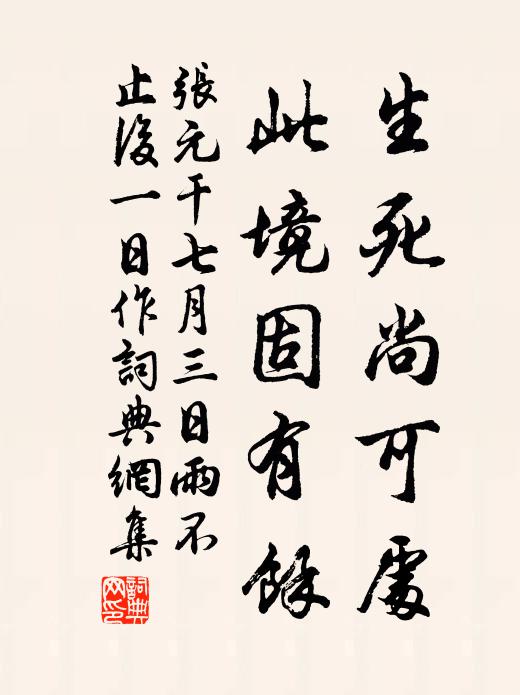 生死尚可處
此境固有餘
張元干七月三日雨不
止後一日作詞典網集
詞典网印